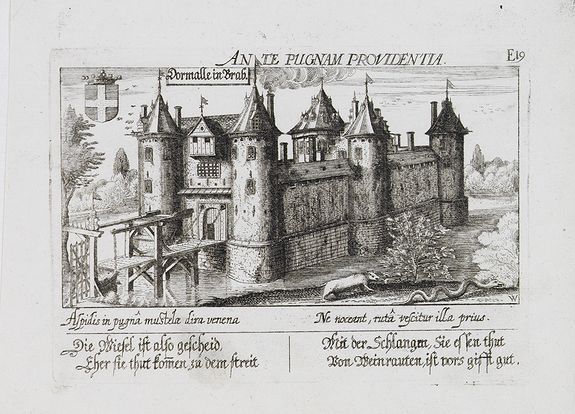 ANTE PUGNAM PROVIDENTIA.
E19
Dormalle in Brab.
W
Aspidis in pugnâ mustelæ dira venena
Ne noceant, rutâ vescitur illa prius.
Die Wiesel ist also gescheid,
Eher sie thut komen zu dem streit
Mit der Schlangen, Sie essen thut
Von Weinrauten, ist vors gifft gut.